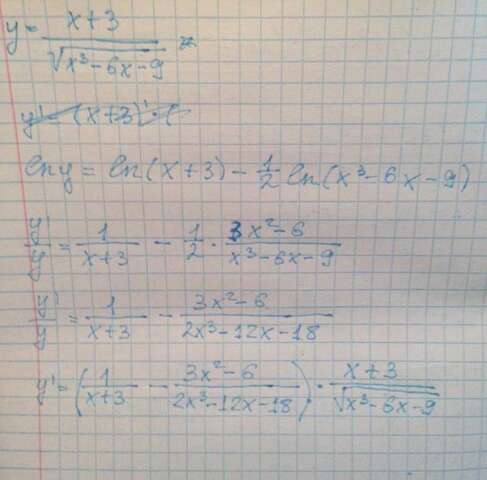 y = (x+3)/√(x³-6x-9) =
y' = (x+3)' · (
ln y = ln(x+3) - 1/2 ln(x³-6x-9)
y'/y = 1/(x+3) - 1/2 · (3x²-6)/(x³-6x-9)
y'/y = 1/(x+3) - (3x²-6)/(2x³-12x-18)
y' = (1/(x+3) - (3x²-6)/(2x³-12x-18)) · (x+3)/√(x³-6x-9)